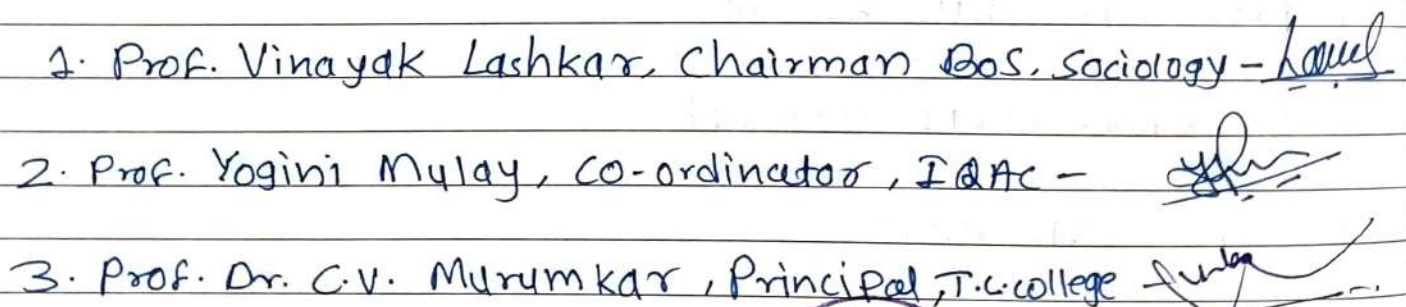 1. Prof. Vinayak Lashkar, Chairman BoS, Sociology -
2. Prof. Yogini Mulay, Co-ordinator, IQAC -
3. Prof. Dr. C.V. Murumkar, Principal, T.C. College